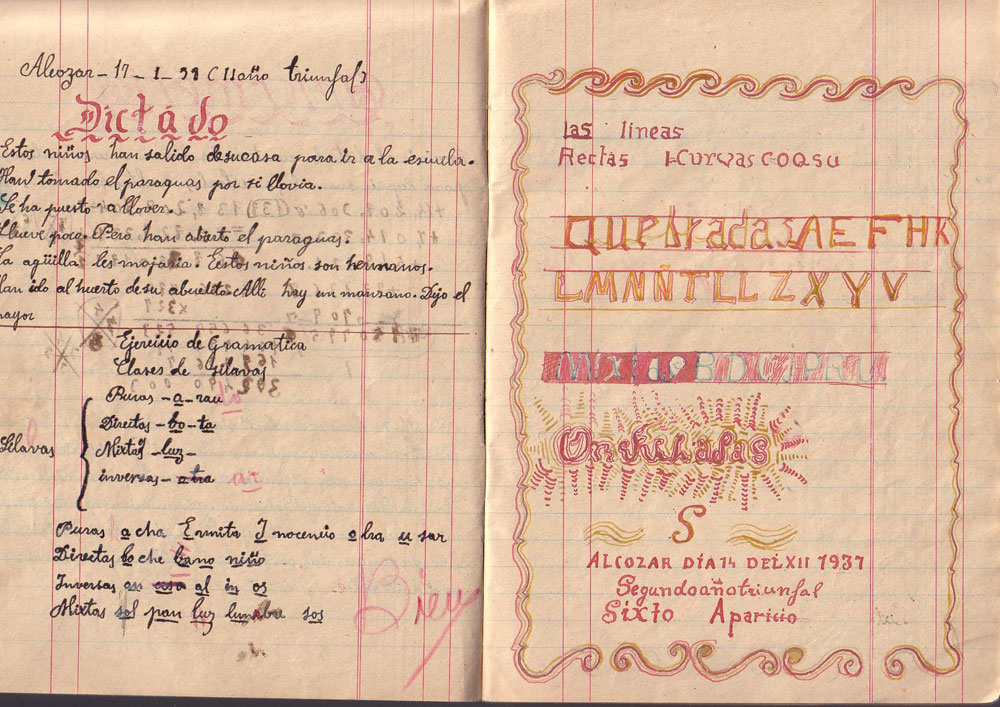 Alcozar - 17 - 1 - 38 (II año triunfal)
Dictado
Estos niños han salido desucasa para ir a la escuela.
Han tomado el paraguas por si llovia.
Se ha puesto a llover.
Llueve poco. Pero han abierto el paraguas.
La agüilla les mojaria. Eestos niños son hermanos.
Han ido al huerto de su abuelito. Allí hay un manzano. Dijo el
mayor
Ejercicio de Gramatica
Clases de silavas
Silavas
Puras - a - rau
Directas - bo - ta
Mixtas - luz -
inversas - atra ar
Puras a cha Ermita Inocencio o bra u sar
Directas bo che bano niño
Inversas an cosa al in os
Mixtas sol pan luz lumbre sos
Bien
las lineas
Rectas I-Curvas C-OQSU
Quebradas AEFHK
LMNÑTLLZXYV
Mixtas BDUJPRU
Onduladas
S
ALCOZAR DÍA 14 DEL XII 1937
Segundo año triunfal
Sixto Aparicio